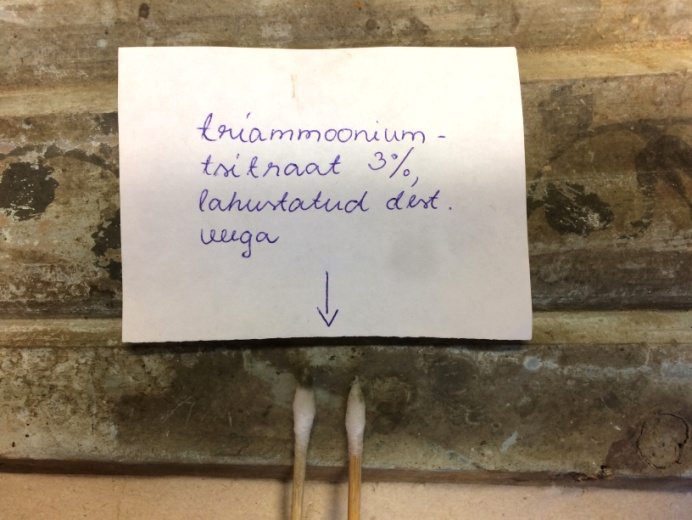 triammoonium-
tsitraat 3%,
lahustatud dest.
veega